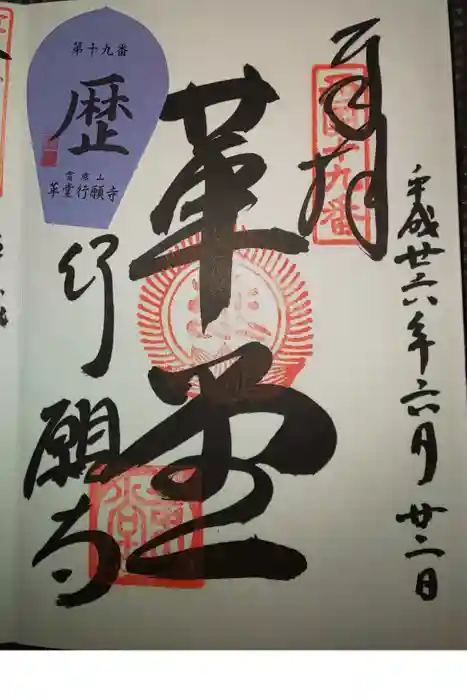 平成廿六年六月廿二日
奉拝
西国十九番
革堂
行願寺
第十九番
歴
革堂行願寺